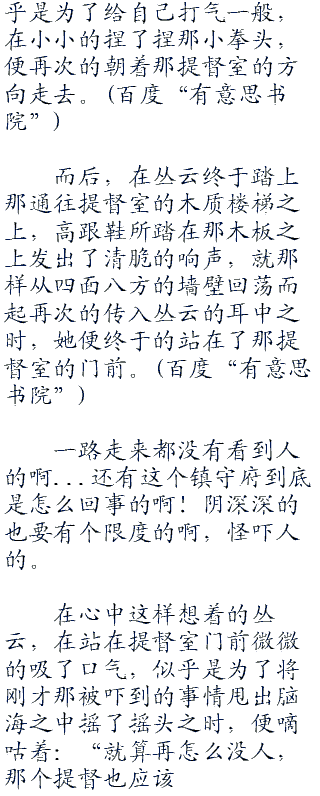 乎是为了给自己打气一般，
在小小的捏了捏那小拳头，
便再次的朝着那提督室的方
向走去。(百度“有意思书
院”)
而后，在丛云终于踏上
那通往提督室的木质楼梯之
上，高跟鞋所踏在那木板之
上发出了清脆的响声，就那
样从四面八方的墙壁回荡而
起再次的传入丛云的耳中之
时，她便终于的站在了那提
督室的门前。(百度“有意思
书院”)
一路走来都没有看到人
的啊...还有这个镇守府到底
是怎么回事的啊！阴深深的
也要有个限度的啊，怪吓人
的。
在心中这样想着的丛
云，在站在提督室门前微微
的吸了口气，似乎是为了将
刚才那被吓到的事情甩出脑
海之中摇了摇头之时，便嘀
咕着：“就算再怎么没人，
那个提督也应该